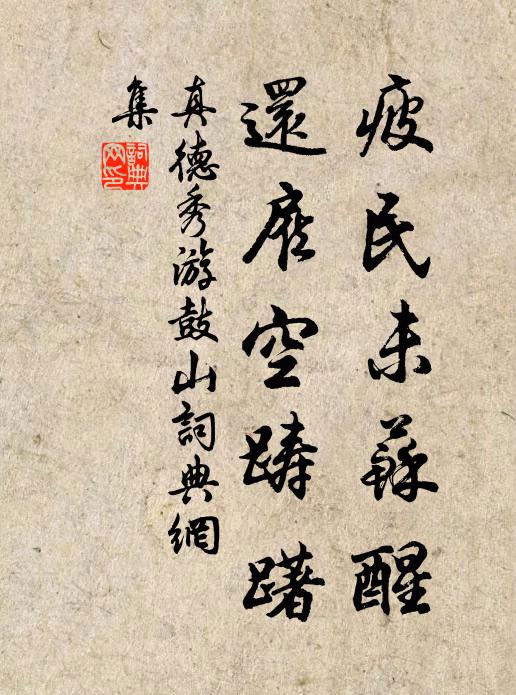 疲民未蘇醒
還空躊躇
真德秀游鼓山詞典網
集
詞典網印